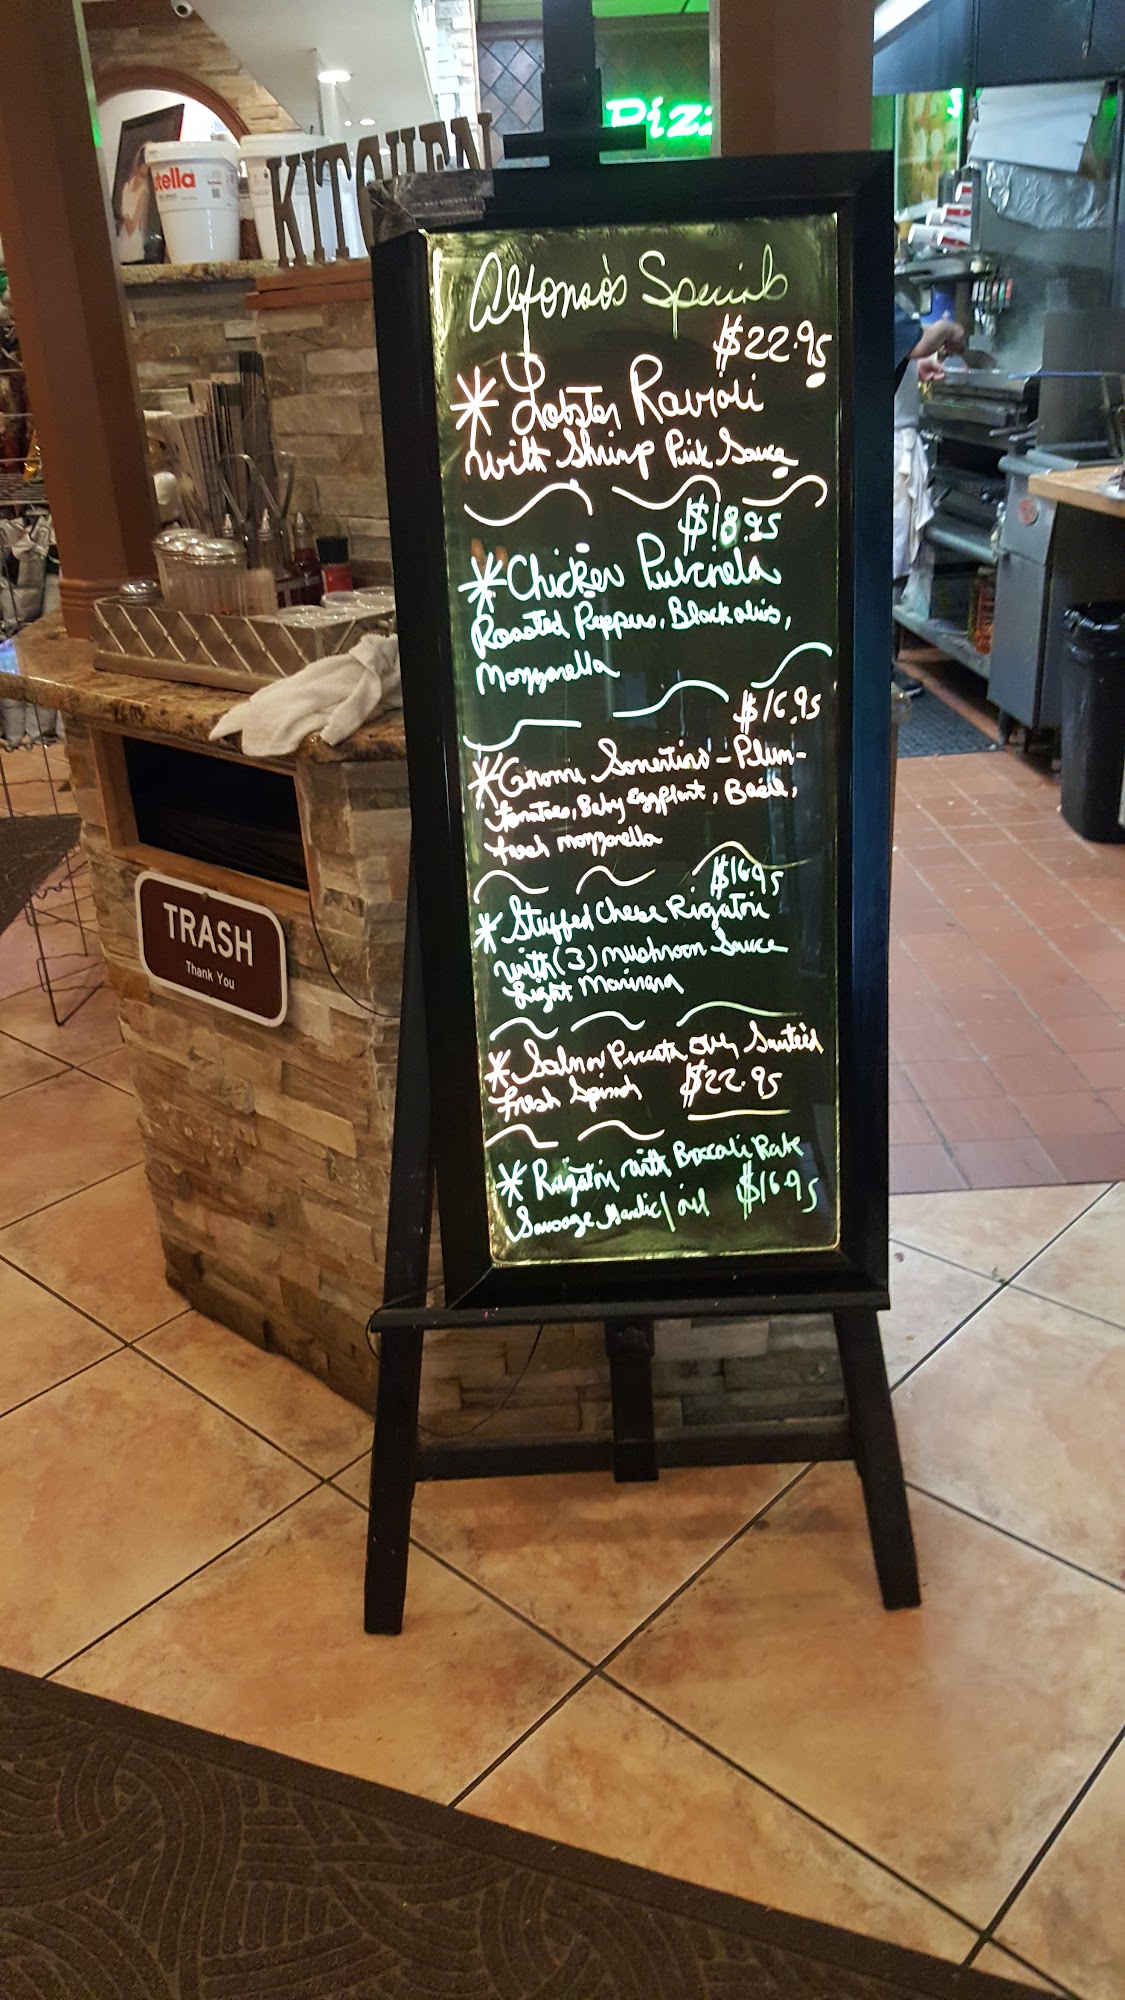 tella
KITCHEN
Pizz
Alfonso's Specials
$22.95
* Lobster Ravioli
with Shrimp Pink Sauce
$18.95
* Chicken Pulcinela
Roasted Peppers, Black olives,
Mozzarella
$16.95
Sorrentino - Plum-
tomatoes, Baby Eggplant, Basil,
fresh mozzarella
$16.95
* Stuffed Cheese Rigatoni
with (3) mushroom Sauce
Light Marinara
* Salmon Piccata over Sauteed
Fresh Spinach $22.95
* Rigatoni with Broccoli Rabe
Sausage garlic/oil $16.95
TRASH
Thank You